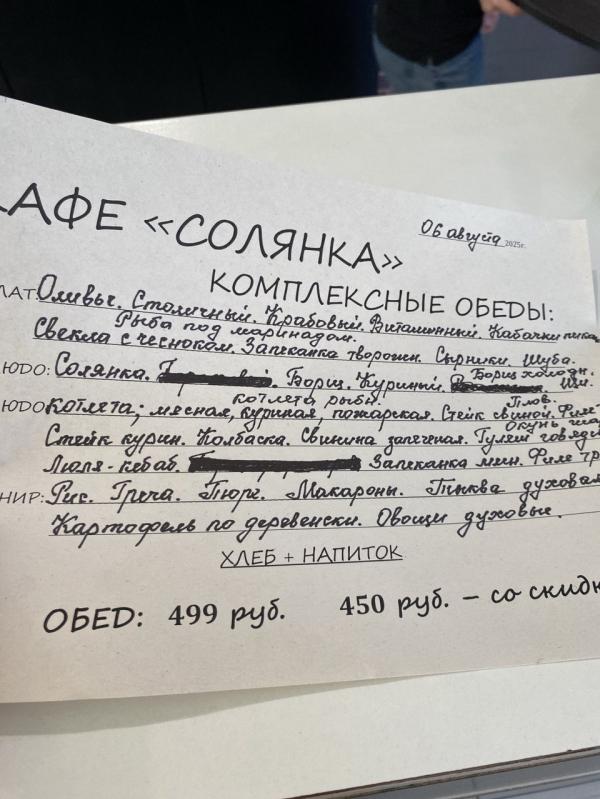 АФЕ «СОЛЯНКА»
06 августа 2025г.
КОМПЛЕКСНЫЕ ОБЕДЫ:
ЛАТ: Оливье. Столичный. Крабовый. Витаминный. Кабачки пика
Рыба под маринадом.
Свекла с чесноком. Запеканка творожн. Сырники. Шуба.
ЮДО: Солянка. Борщ. Куриный. Борщ холодн. Щи.
котлета рыбн. Плов.
ЮДО: Котлета; мясная, куриная, пожарская. Стейк свиной. Филе
Окунь
Стейк курин. Колбаска. Свинина запеченая. Гуляш говяд
Люля-кебаб. Запеканка мясн. Филе тр
НИР: Рис. Греча. Пюре. Макароны. Тыква духовая
Картофель по деревенски. Овощи духовые.
ХЛЕБ + НАПИТОК
ОБЕД: 499 руб. 450 руб. – со скидк